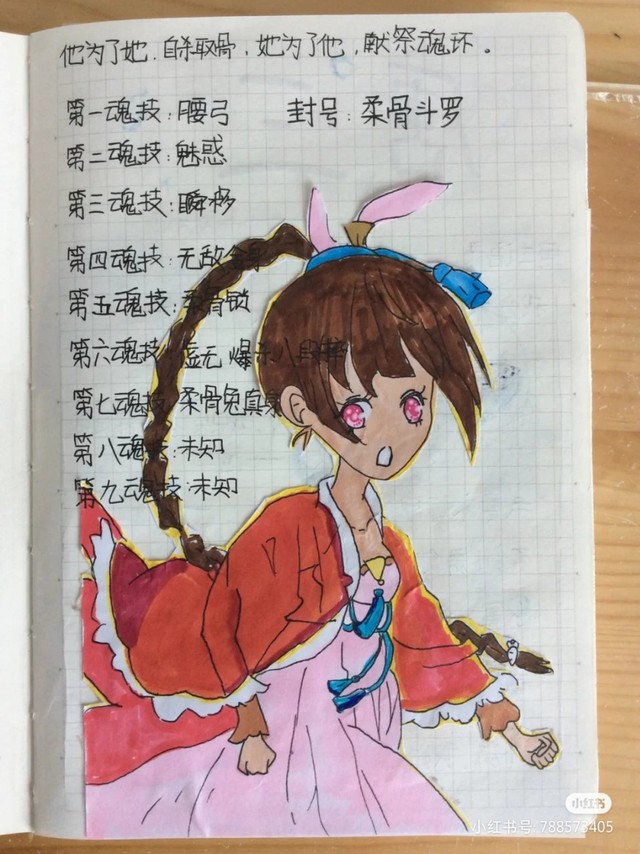 他为了她，自杀取骨，她为了他，献祭魂环。
第一魂技：腰弓 封号：柔骨斗罗
第二魂技：魅惑
第三魂技：瞬移
第四魂技：无敌金身
第五魂技：柔骨锁
第六魂技：虚无 爆杀八段摔
第七魂技：柔骨兔真身
第八魂技：未知
第九魂技：未知
小红书
小红书号：788573405